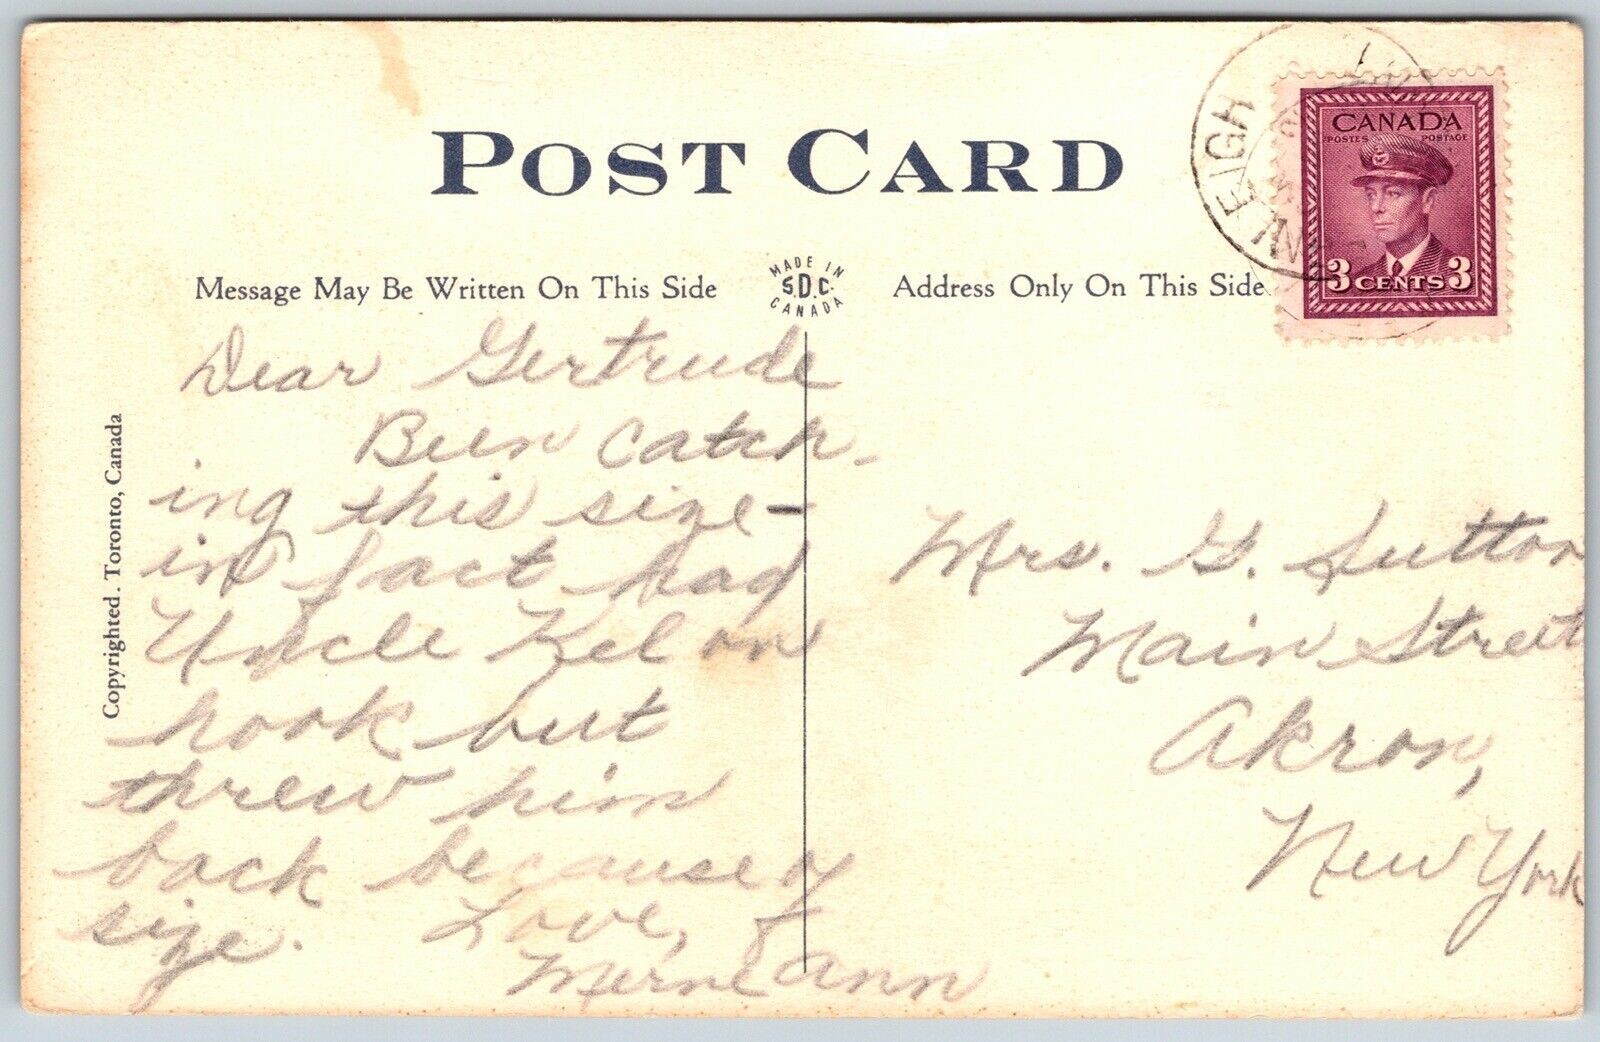 POST CARD
CANADA
POSTES POSTAGE
3 CENTS 3
Message May Be Written On This Side
MADE IN
S.D.C.
CANADA
Address Only On This Side
Copyrighted. Toronto, Canada
Dear Gertrude
Been catch-
ing this size-
in fact had
Uncle Kel on
hook but
threw him
back because of
size. Love,
Merne & Ann
Mrs. G. Sutton
Main Street
Akron,
New York